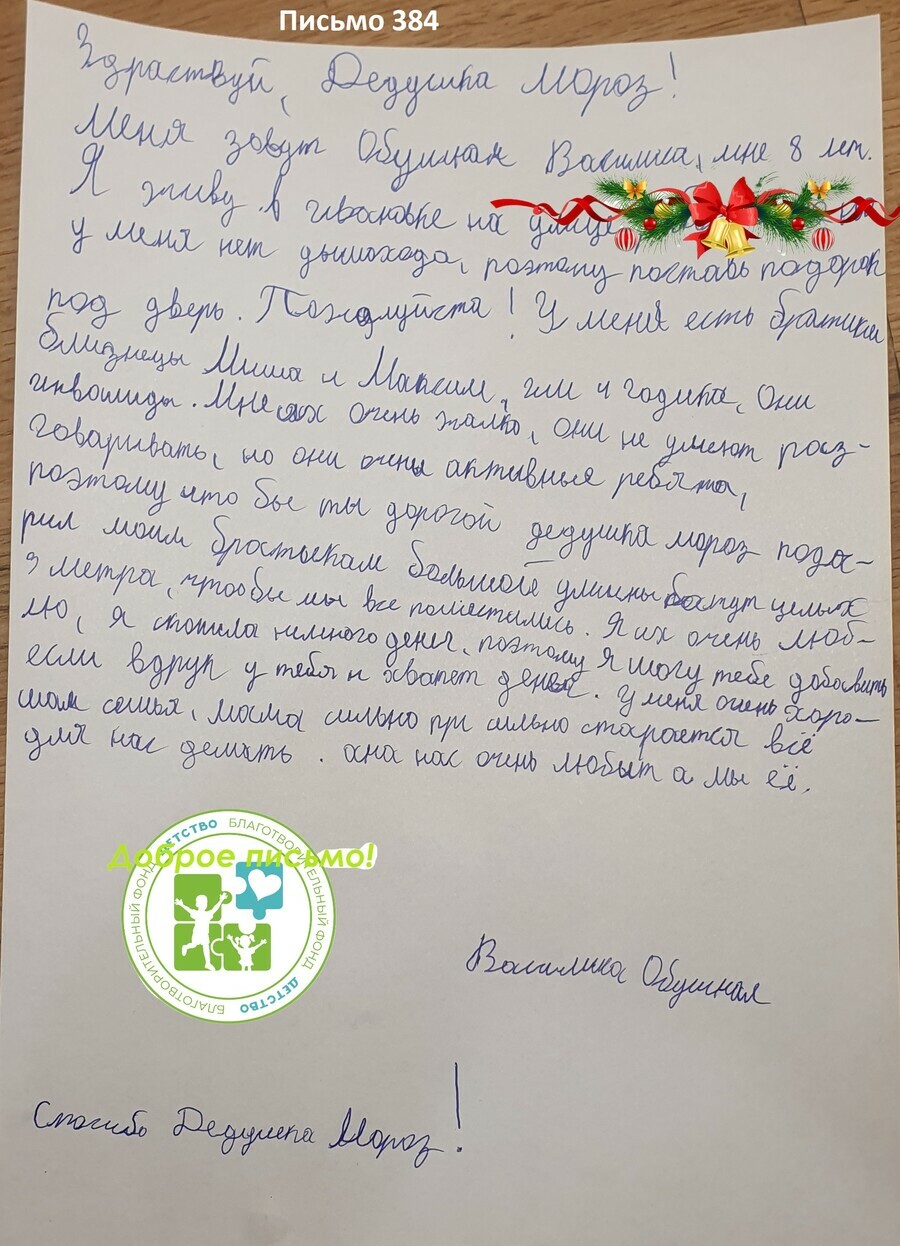 Письмо 384
Здраствуй, Дедушка Мороз!
Меня зовут Обушная Василика, мне 8 лет.
Я живу в ивановке на улице
у меня нет дымохода, поэтому поставь подорок
под дверь. Пожалуйста! У меня есть братики
близнецы Миша и Максим, им 4 годика, Они
инвалиды. Мне их очень жалко, они не умеют роз-
говаривать, но они очень активные ребята,
поэтому что бы ты дорогой дедушка мороз пода-
рил моим братьекам большой уличны батут целых
3 метра, чтообы мы все поместились. Я их очень люб-
лю, я скопила нимного денег, поэтому я могу тебе добавить
если вдруг у тебя н хватет денег. У меня очень харо-
шая семья, мама сильно при сильно старается всё
для нас делать. ана нас очень любит а мы её.
Доброе письмо!
БЛАГОТВОРИТЕЛЬНЫЙ ФОНД ДЕТСТВО БЛАГОТВОРИТЕЛЬНЫЙ ФОНД ДЕТСТВО
Василика Обушная
Спасибо Дедушка Мороз!